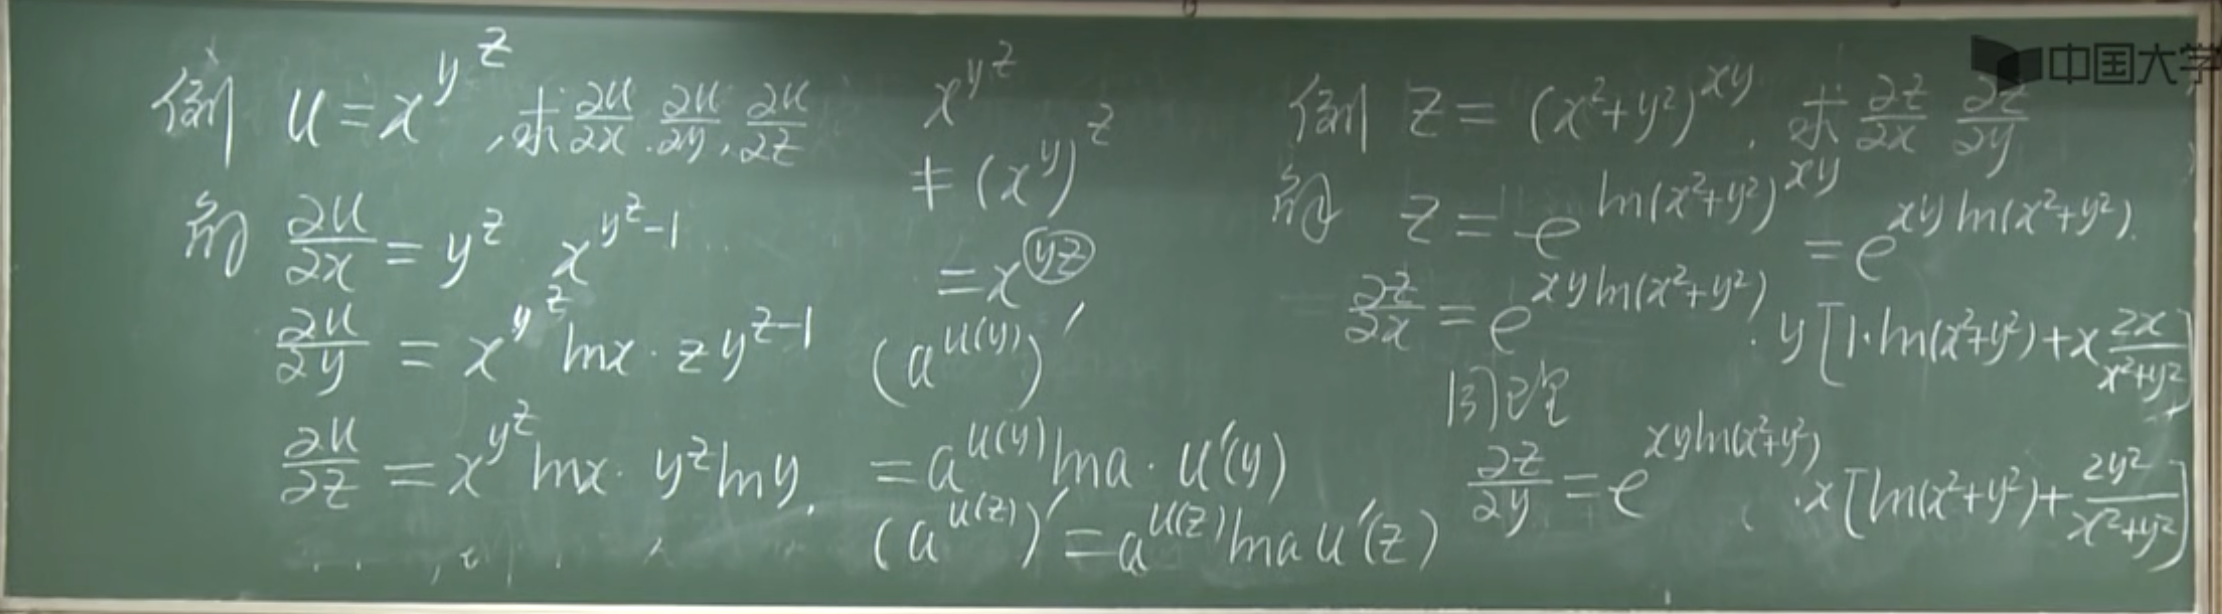 例 u = x^{y^z}, 求 ∂u/∂x . ∂u/∂y , ∂u/∂z
解 ∂u/∂x = y^z x^{y^z-1}
∂u/∂y = x^{y^z} lnx · z y^{z-1}
∂u/∂z = x^{y^z} lnx · y^z lny.
x^{y^z}
≠ (x^y)^z
= x^{yz}
(a^{u(y)})′
= a^{u(y)} lna · u′(y)
(a^{u(z)})′ = a^{u(z)} lna u′(z)
中国大学
例 z = (x²+y²)^{xy}. 求 ∂z/∂x ∂z/∂y
解 z = e^{ln(x²+y²)^{xy}} = e^{xy ln(x²+y²)}.
∂z/∂x = e^{xy ln(x²+y²)} · y[1·ln(x²+y²) + x 2x/(x²+y²)]
同理
∂z/∂y = e^{xy ln(x²+y²)} · x[ln(x²+y²) + 2y²/(x²+y²)]